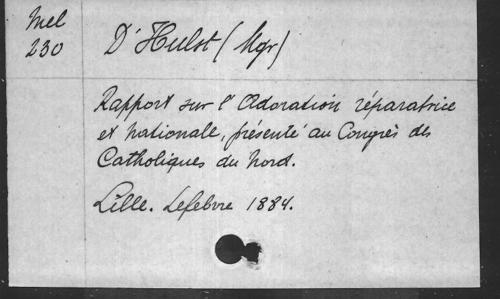 Mel
230
D'Hulst (Mgr)
Rapport sur l'Adoration réparatrice
et nationale, présenté au Congrès des
Catholiques du Nord.
Lille. Lefebvre 1884.